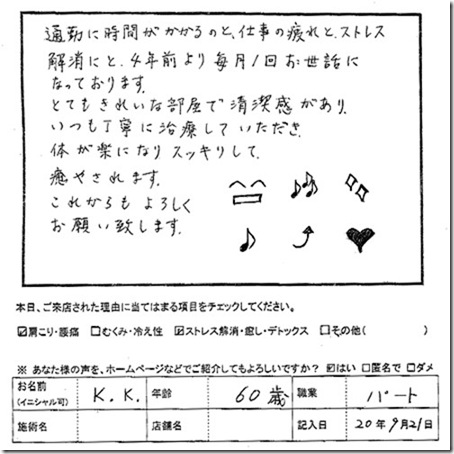 通勤に時間がかかるのと、仕事の疲れと、ストレス
解消にと、4年前より毎月1回お世話に
なっております。
とてもきれいな部屋で清潔感があり、
いつも丁寧に治療していただき、
体が楽になりスッキリして、
癒やされます。
これからもよろしく
お願い致します。
本日、ご来店された理由に当てはまる項目をチェックしてください。
☑肩こり・腰痛 □むくみ・冷え性 ☑ストレス解消・癒し・デトックス □その他( )
※ あなた様の声を、ホームページなどでご紹介してもよろしいですか? ☑はい □匿名で □ダメ
お名前 (イニシャル可) K.K. 年齢 60歳 職業 パート
施術名 店舗名 記入日 20年9月21日